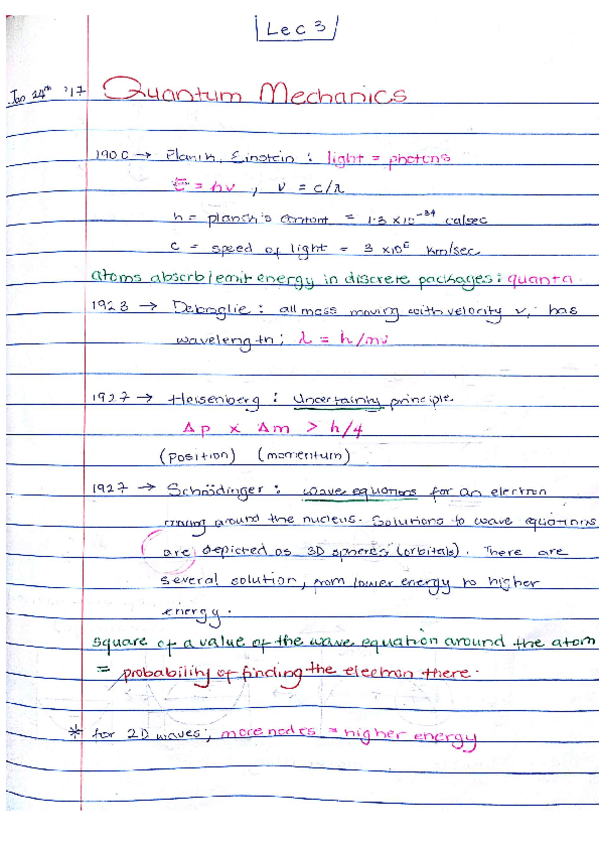 Lec 3
Jan 24th '17 Quantum Mechanics
1900 → Planck, Einstein : light = photons
E = hν , ν = c/λ
h = planck's constant = 1.3 x10⁻³⁴ cal sec
c = speed of light = 3 x10⁵ km/sec
atoms absorb/emit energy in discrete packages : quanta.
1923 → Debroglie : all mass moving with velocity v, has
wavelength; λ = h/mv
1927 → Heisenberg : Uncertainty principle.
Δp x Δm > h/4
(position) (momentum)
1927 → Schrödinger : wave equations for an electron
moving around the nucleus. Solutions to wave equations
are depicted as 3D spheres (orbitals). There are
several solution, from lower energy to higher
energy.
square of a value of the wave equation around the atom
= probability of finding the electron there.
* for 2D waves; more nodes = higher energy